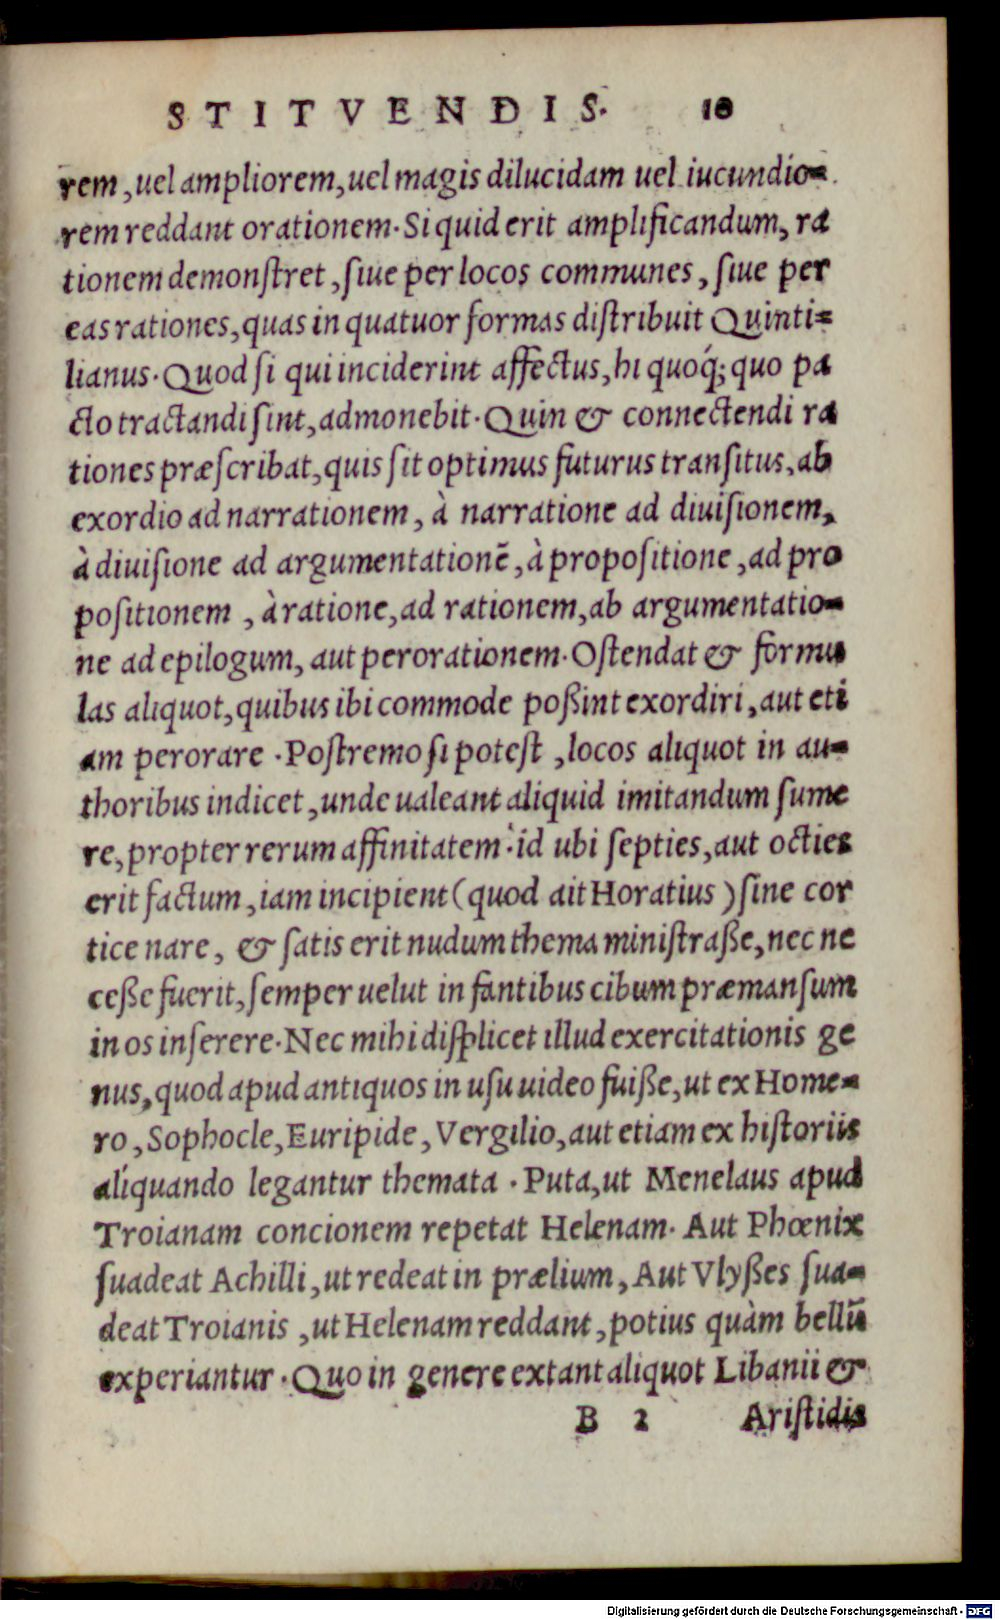 STITVENDIS. 10
rem, uel ampliorem, uel magis dilucidam uel iucundio=
rem reddant orationem. Si quid erit amplificandum, ra
tionem demonſtret, ſiue per locos communes, ſiue per
eas rationes, quas in quatuor formas diſtribuit Quinti=
lianus. Quod ſi qui inciderint affectus, hi quoq́; quo pa
cto tractandi ſint, admonebit. Quin & connectendi ra
tiones præſcribat, quis ſit optimus futurus tranſitus, ab
exordio ad narrationem, à narratione ad diuiſionem,
à diuiſione ad argumentationē, à propoſitione, ad pro
poſitionem, à ratione, ad rationem, ab argumentatio=
ne ad epilogum, aut perorationem. Oſtendat & formu
las aliquot, quibus ibi commode poßint exordiri, aut eti
am perorare. Poſtremo ſi poteſt, locos aliquot in au=
thoribus indicet, unde ualeant aliquid imitandum ſume
re, propter rerum affinitatem. id ubi ſepties, aut octies
erit factum, iam incipient (quod ait Horatius) ſine cor
tice nare, & ſatis erit nudum thema miniſtraße, nec ne
ceße fuerit, ſemper uelut infantibus cibum præmanſum
in os inſerere. Nec mihi diſplicet illud exercitationis ge
nus, quod apud antiquos in uſu uideo fuiße, ut ex Home=
ro, Sophocle, Euripide, Vergilio, aut etiam ex hiſtoriis
aliquando legantur themata. Puta, ut Menelaus apud
Troianam concionem repetat Helenam. Aut Phœnix
ſuadeat Achilli, ut redeat in prælium, Aut Vlyßes ſua=
deat Troianis, ut Helenam reddant, potius quàm bellū
experiantur. Quo in genere extant aliquot Libanii &
B 2 Ariſtidis
Digitalisierung gefördert durch die Deutsche Forschungsgemeinschaft - DFG